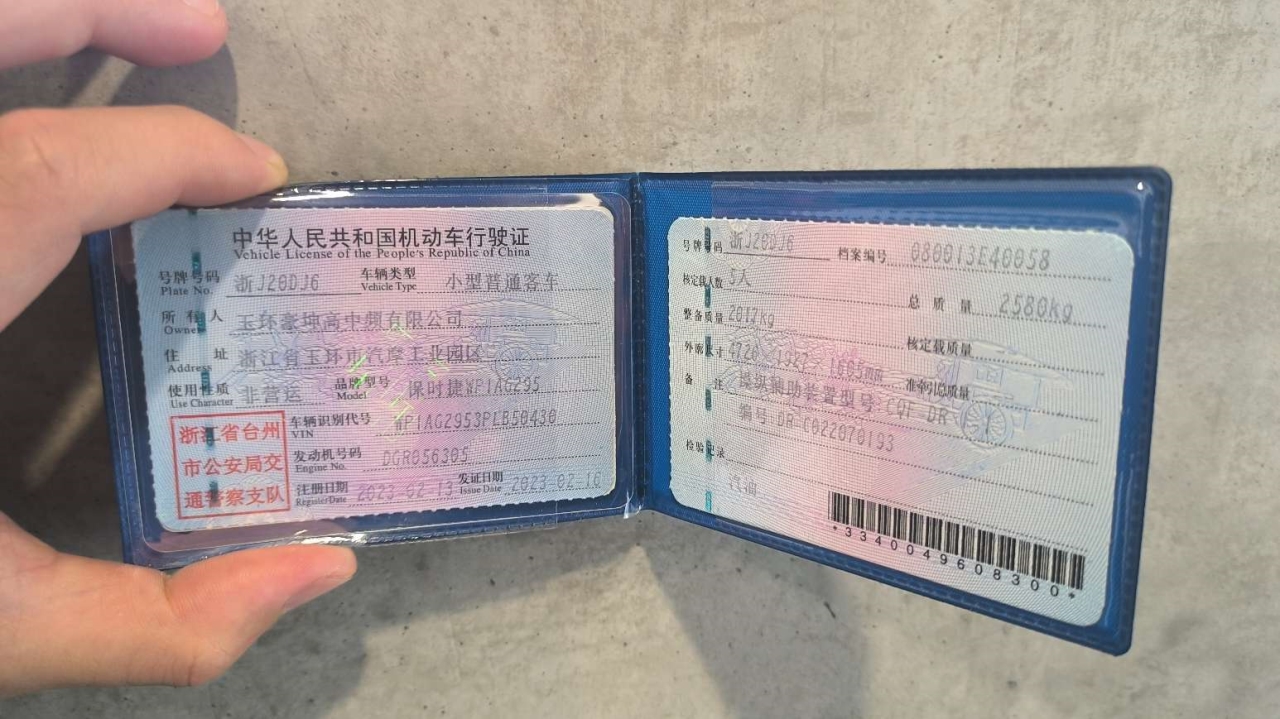 中华人民共和国机动车行驶证
Vehicle License of the People's Republic of China
号牌号码 浙J20DJ6 车辆类型 小型普通客车
Plate No. Vehicle Type
所有人 玉环豪坤高中频有限公司
Owner
住址 浙江省玉环市汽摩工业园区
Address
使用性质 非营运 品牌型号 保时捷WP1AG295
Use Character Model
浙江省台州
市公安局交
通警察支队
车辆识别代号 WP1AG2953PLB50430
VIN
发动机号码 DGR056305
Engine No.
注册日期 2023-02-13 发证日期 2023-02-16
Register Date Issue Date
号牌号码 浙J20DJ6 档案编号 080013E40058
核定载人数 5人 总质量 2580kg
整备质量 2012kg 核定载质量
外廓尺寸 1605mm 准牵引总质量
备注 操纵辅助装置型号:CQT DR
编号:DR C022070193
检验记录
汽油
*3340049608300*